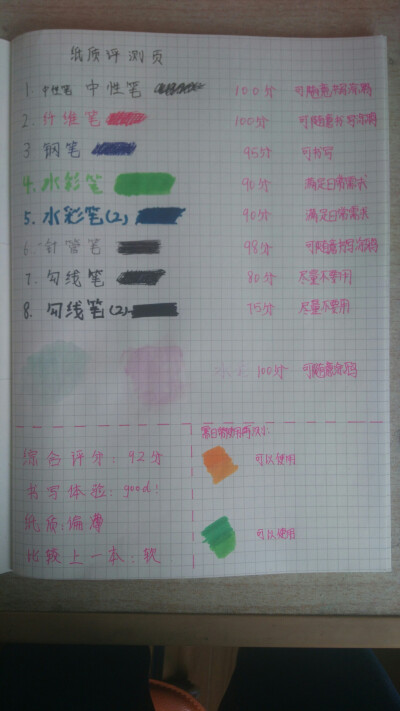 纸质评测页
1. 中性笔 中性笔 100分
2. 纤维笔 100分
3 钢笔 95分 可书写
4. 水彩笔 90分 满足日常需求
5. 水彩笔(2) 90分 满足日常需求
6. 针管笔 98分
7. 勾线笔 80分 尽量不要用
8. 勾线笔(2) 75分 尽量不要用
100分
综合评分: 92分
可以使用
书写体验: good!
纸质: 偏薄
可以使用
比较上一本: 软